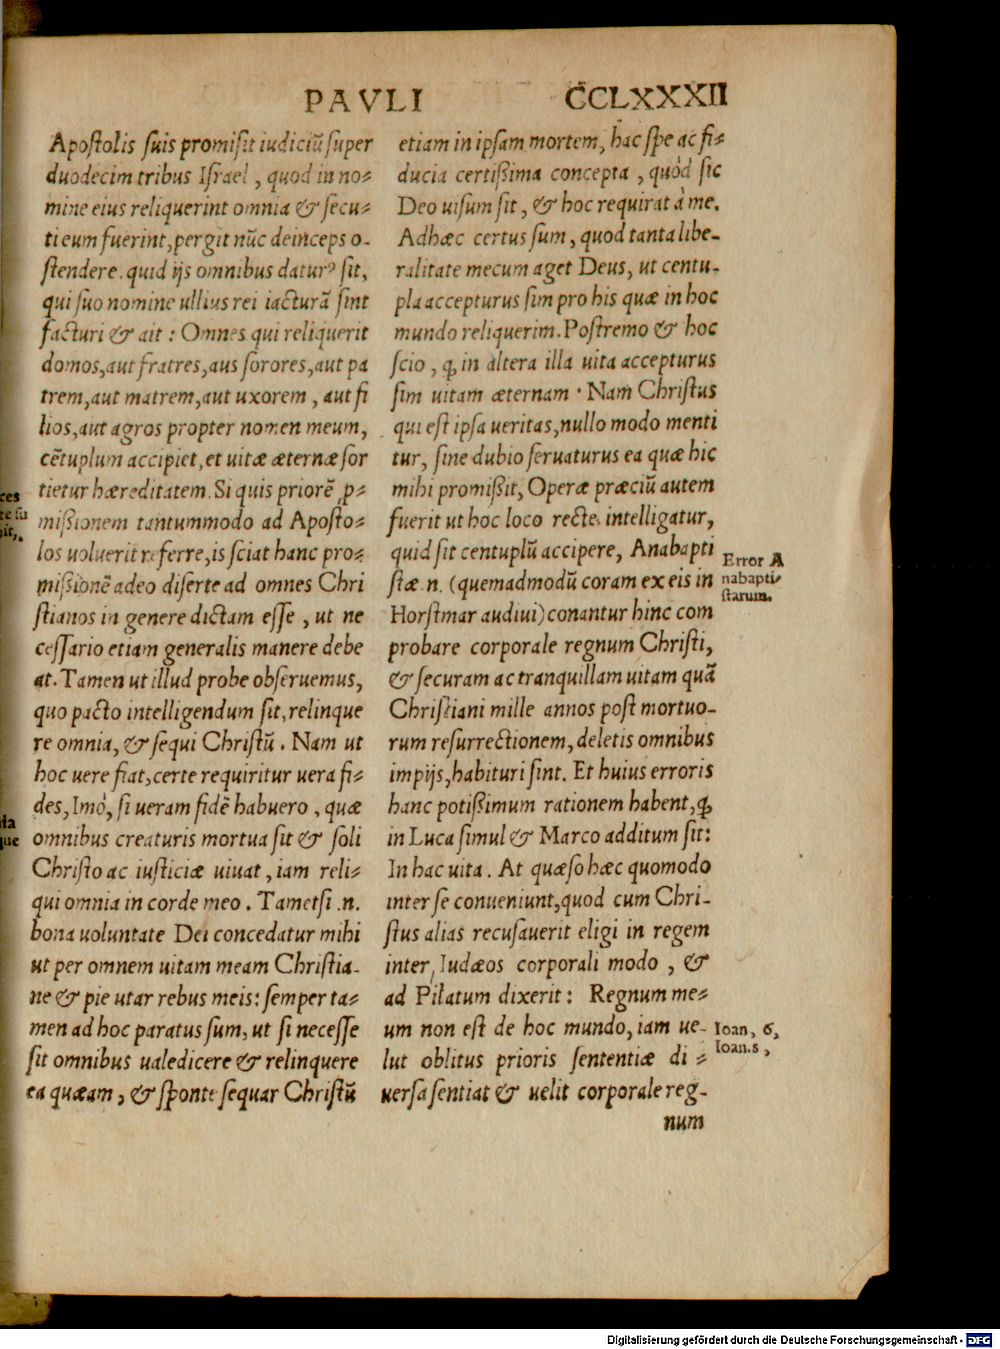 PAVLI
CCLXXXII
Apostolis suis promisit iudiciũ super
duodecim tribus Israel, quod in no⸗
mine eius reliquerint omnia & secu⸗
ti eum fuerint, pergit nũc deinceps o-
stendere. quid ijs omnibus daturꝰ sit,
qui suo nomine ullius rei iacturã sint
facturi & ait: Omnes qui reliquerit
domos, aut fratres, aus sorores, aut pa
trem, aut matrem, aut uxorem, aut fi
lios, aut agros propter nomen meum,
cẽtuplum accipiet, et uitæ æternæ sor
tietur hæreditatem. Si quis priorẽ ꝓ⸗
mißionem tantummodo ad Aposto⸗
los uoluerit referre, is sciat hanc pro⸗
mißionẽ adeo diserte ad omnes Chri
stianos in genere dictam esse, ut ne
cessario etiam generalis manere debe
at. Tamen ut illud probe obseruemus,
quo pacto intelligendum sit, relinque
re omnia, & sequi Christũ. Nam ut
hoc uere fiat, certe requiritur uera fi⸗
des, Imò, si ueram fidẽ habuero, quæ
omnibus creaturis mortua sit & soli
Christo ac iusticiæ uiuat, iam reli⸗
qui omnia in corde meo. Tametsi .n.
bona uoluntate Dei concedatur mihi
ut per omnem uitam meam Christia-
ne & pie utar rebus meis: semper ta⸗
men ad hoc paratus sum, ut si necesse
sit omnibus ualedicere & relinquere
ea quæam, & sponte sequar Christũ
etiam in ipsam mortem, hac spe ac fi⸗
ducia certißima concepta, quòd sic
Deo uisum sit, & hoc requirat à me.
Adhæc certus sum, quod tanta libe-
ralitate mecum aget Deus, ut centu-
pla accepturus sim pro his quæ in hoc
mundo reliquerim. Postremo & hoc
scio, ꝙ in altera illa uita accepturus
sim uitam æternam. Nam Christus
qui est ipsa ueritas, nullo modo menti
tur, sine dubio seruaturus ea quæ hic
mihi promißit, Operæ præciũ autem
fuerit ut hoc loco recte intelligatur,
quid sit centuplũ accipere, Anabapti
stæ .n. (quemadmodũ coram ex eis in
Horstmar audiui) conantur hinc com
probare corporale regnum Christi,
& securam ac tranquillam uitam quã
Christiani mille annos post mortuo-
rum resurrectionem, deletis omnibus
impijs, habituri sint. Et huius erroris
hanc potißimum rationem habent, ꝙ
in Luca simul & Marco additum sit:
In hac uita. At quæso hæc quomodo
inter se conueniunt, quod cum Chri-
stus alias recusauerit eligi in regem
inter Iudæos corporali modo, &
ad Pilatum dixerit: Regnum me⸗
um non est de hoc mundo, iam ue-
lut oblitus prioris sententiæ di⸗
uersa sentiat & uelit corporale reg-
num
Error A
nabapti⸗
starum.
Ioan, 6,
Ioan.s,
ces
ia
que
Digitalisierung gefördert durch die Deutsche Forschungsgemeinschaft - DFG